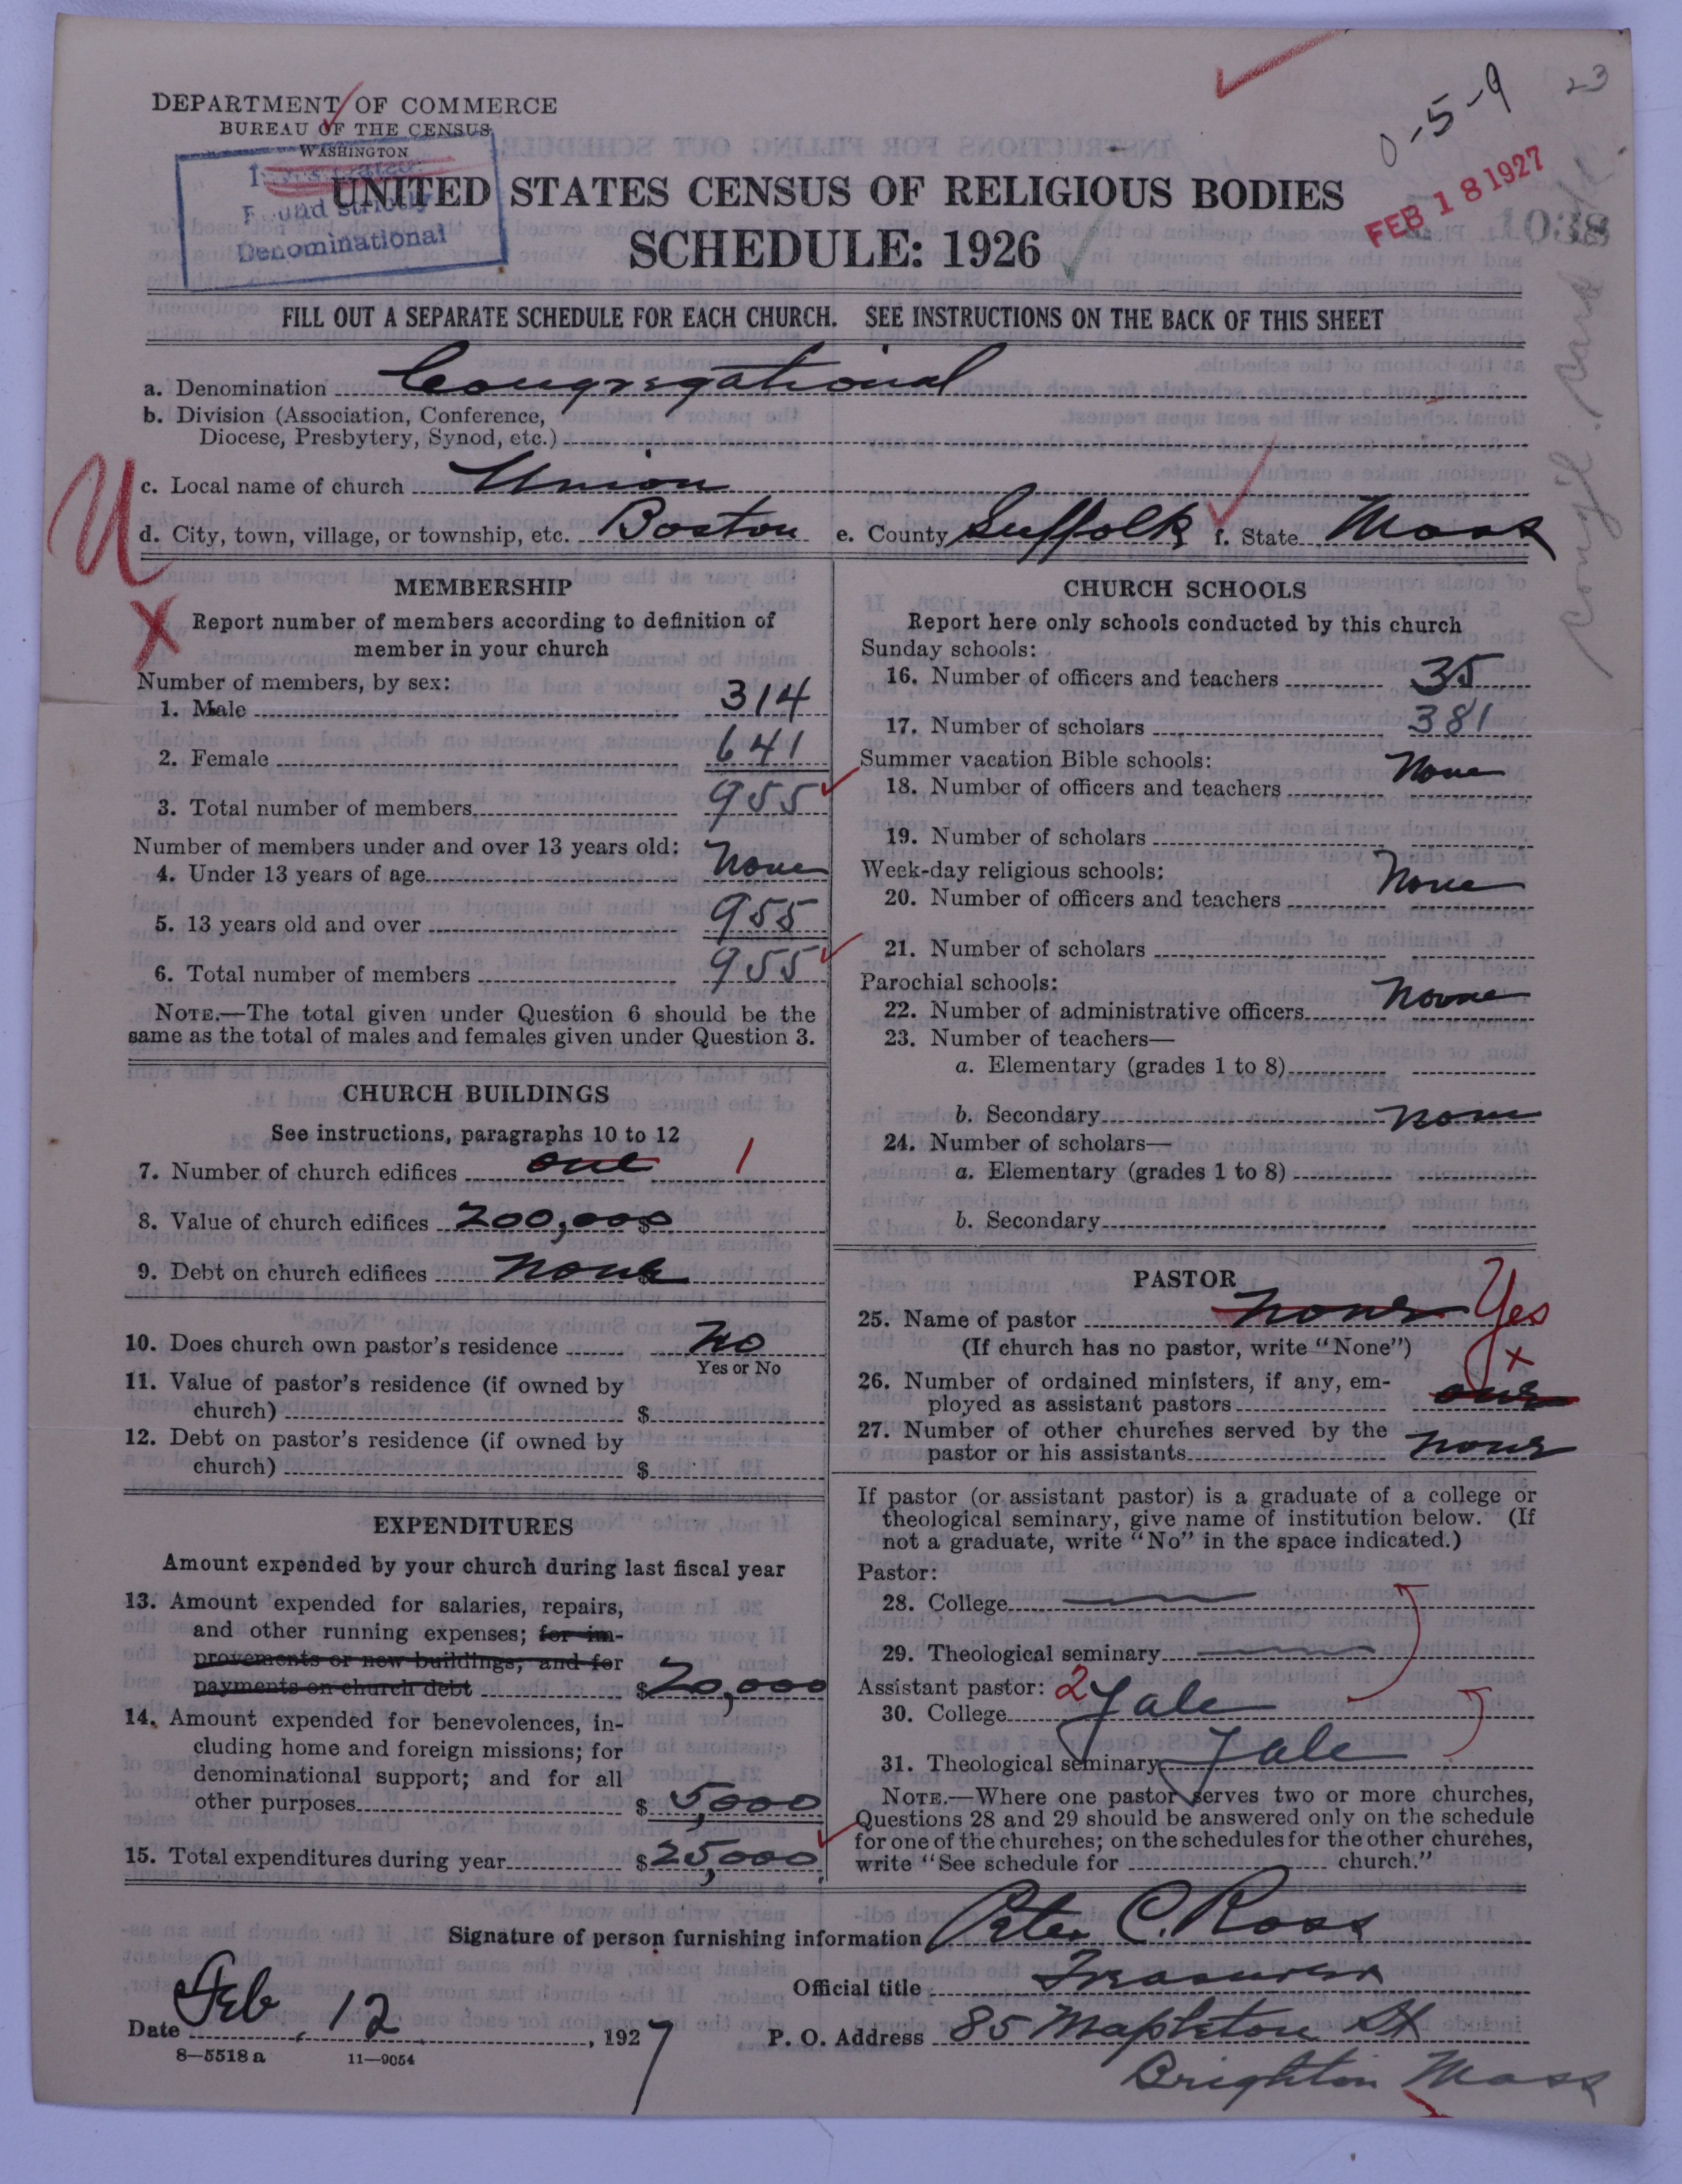 DEPARTMENT OF COMMERCE
BUREAU OF THE CENSUS
WASHINGTON
Found strictly
Denominational
UNITED STATES CENSUS OF RELIGIOUS BODIES
SCHEDULE: 1926
0-5-9
23
FEB 18 1927
1038
FILL OUT A SEPARATE SCHEDULE FOR EACH CHURCH. SEE INSTRUCTIONS ON THE BACK OF THIS SHEET
a. Denomination Congregational
b. Division (Association, Conference,
Diocese, Presbytery, Synod, etc.)
c. Local name of church Union
U
d. City, town, village, or township, etc. Boston e. County Suffolk f. State Mass
MEMBERSHIP
X
Report number of members according to definition of
member in your church
Number of members, by sex:
1. Male 314
2. Female 641
3. Total number of members 955
Number of members under and over 13 years old:
4. Under 13 years of age None
5. 13 years old and over 955
6. Total number of members 955
NOTE.—The total given under Question 6 should be the
same as the total of males and females given under Question 3.
CHURCH BUILDINGS
See instructions, paragraphs 10 to 12
7. Number of church edifices one 1
8. Value of church edifices 200,000 $
9. Debt on church edifices none $
10. Does church own pastor's residence No
Yes or No
11. Value of pastor's residence (if owned by
church) $
12. Debt on pastor's residence (if owned by
church) $
EXPENDITURES
Amount expended by your church during last fiscal year
13. Amount expended for salaries, repairs,
and other running expenses; for im-
provements or new buildings, and for
payments on church debt $20,000
14. Amount expended for benevolences, in-
cluding home and foreign missions; for
denominational support; and for all
other purposes $5,000
15. Total expenditures during year $25,000
CHURCH SCHOOLS
Report here only schools conducted by this church
Sunday schools:
16. Number of officers and teachers 35
17. Number of scholars 381
Summer vacation Bible schools:
18. Number of officers and teachers None
19. Number of scholars
Week-day religious schools:
20. Number of officers and teachers None
21. Number of scholars
Parochial schools:
22. Number of administrative officers None
23. Number of teachers—
a. Elementary (grades 1 to 8)
b. Secondary none
24. Number of scholars—
a. Elementary (grades 1 to 8)
b. Secondary
PASTOR
25. Name of pastor none Yes
(If church has no pastor, write "None")
x
26. Number of ordained ministers, if any, em-
ployed as assistant pastors one
27. Number of other churches served by the
pastor or his assistants none
If pastor (or assistant pastor) is a graduate of a college or
theological seminary, give name of institution below. (If
not a graduate, write "No" in the space indicated.)
Pastor:
28. College
29. Theological seminary
Assistant pastor: 2
30. College Yale
31. Theological seminary Yale
NOTE.—Where one pastor serves two or more churches,
Questions 28 and 29 should be answered only on the schedule
for one of the churches; on the schedules for the other churches,
write "See schedule for church."
Signature of person furnishing information Peter C. Ross
Official title Treasurer
Date Feb. 12, 1927 P. O. Address 85 Mapleton St
8—5518 a 11—9054
Brighton Mass